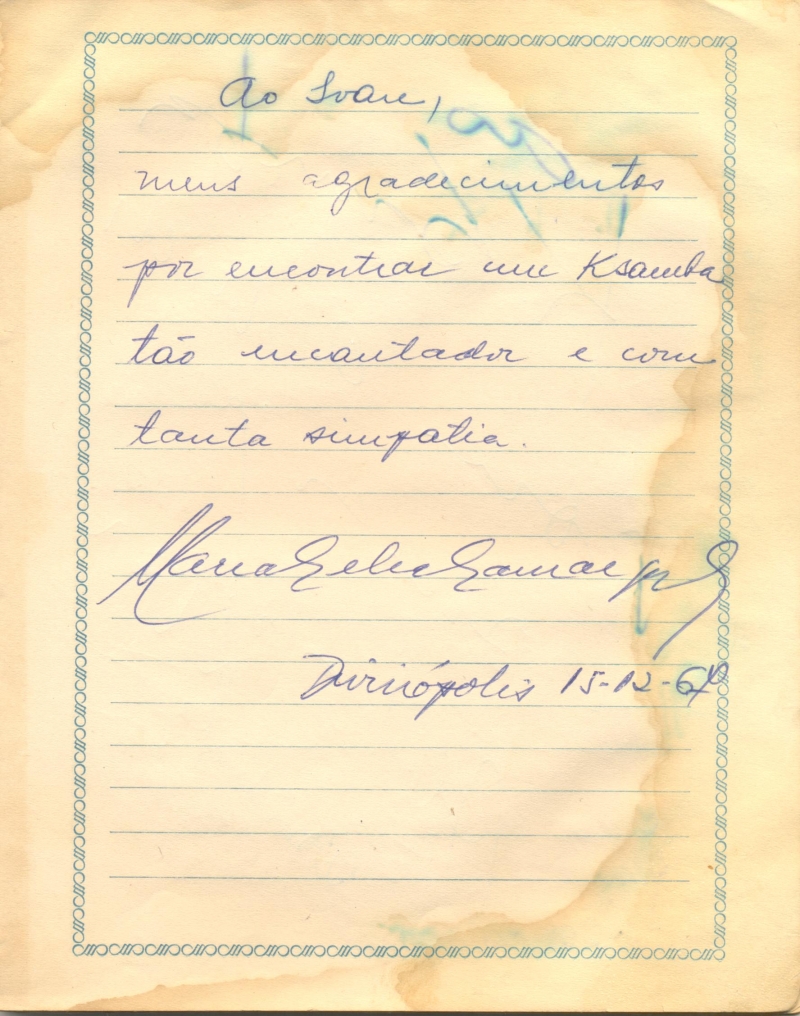 Ao Ivan,
meus agradecimentos
por encontrar um Ksamba
tão encantador e com
tanta simpatia.
Maria Camargo
Divinópolis 15-12-64